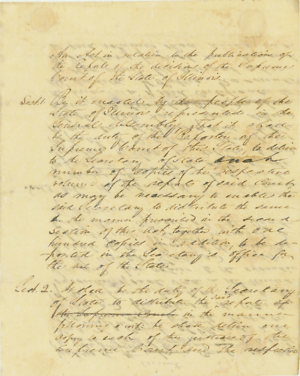 An Act in relation to the publication of
the reports of the decisions of the Supreme
Court of the State of Illinois.
Sec 1 Be it enacted by the people of the
State of Illinois represented in the
General Assembly, That it shall
be the duty of the Reporter of the
Supreme Court of this State to deliver
to the Secretary of State such
number of copies of the respective
volumes of the reports of said Court,
as may be necessary to enable the
said Secretary to distribute the same
in the manner provided in the second
section of this act, together with one
hundred copies in addition, to be de-
posited in the Secretary's office for
the use of the State.
Sec. 2. It shall be the duty of the Secretary
of State, to distribute the reports of
the Supreme Court in the manner
following: he shall deliver one
copy to each of the justices of the
Supreme Court, and the respective